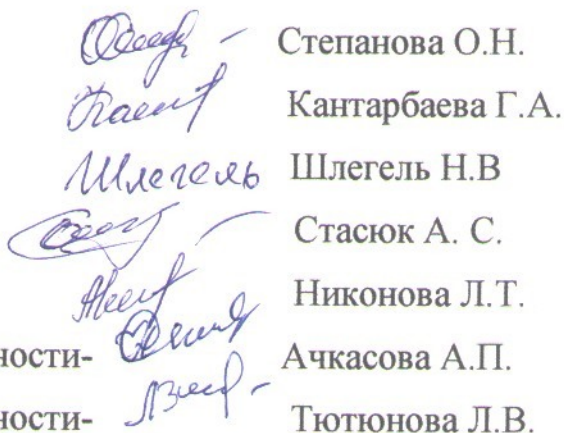 Степанова О.Н.
Кантарбаева Г.А.
Шлегель Шлегель Н.В
Стасюк А. С.
Никонова Л.Т.
ности- Ачкасова А.П.
ности- Тютюнова Л.В.